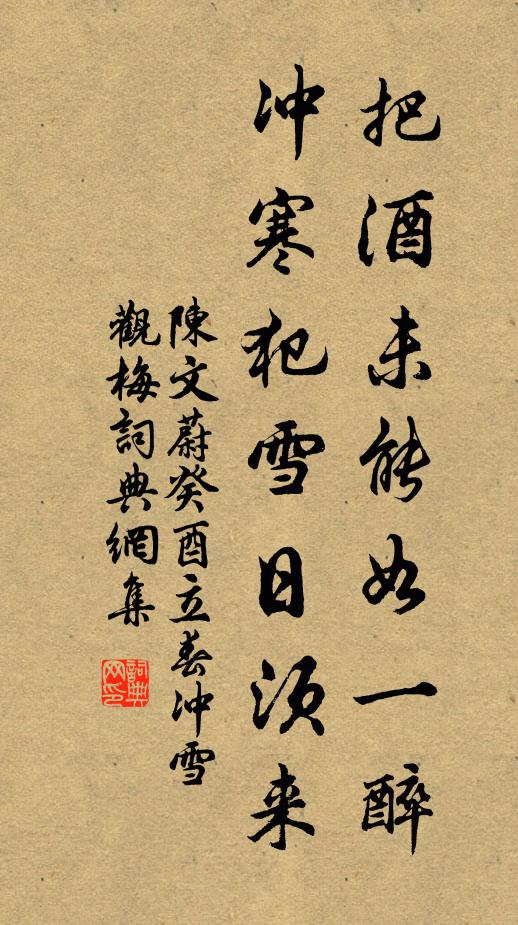 把酒未能如一醉
冲寒犯雪日须来
陳文蔚癸酉立春冲雪
觀梅詞典網集
詞典网印